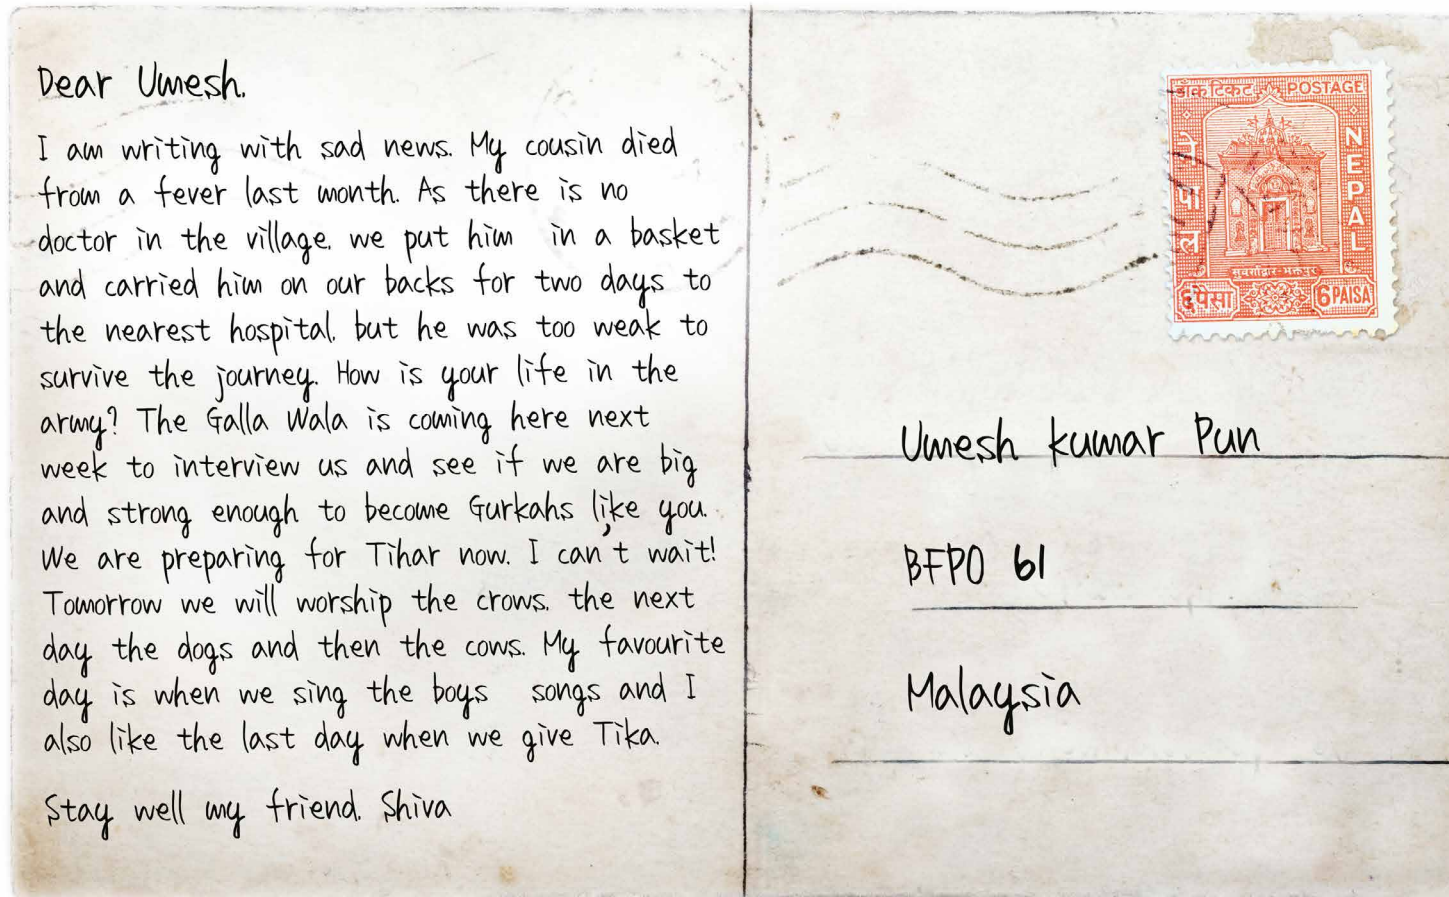 Dear Umesh.
I am writing with sad news. My cousin died
from a fever last month. As there is no
doctor in the village. we put him in a basket
and carried him on our backs for two days to
the nearest hospital. but he was too weak to
survive the journey. How is your life in the
army? The Galla Wala is coming here next
week to interview us and see if we are big
and strong enough to become Gurkahs like you.
We are preparing for Tihar now. I can't wait!
Tomorrow we will worship the crows. the next
day the dogs and then the cows. My favourite
day is when we sing the boys songs and I
also like the last day when we give Tika.
Stay well my friend. Shiva
डाँक टिकट POSTAGE
नेपाल
NEPAL
६ पैसा
6 PAISA
Umesh kumar Pun
BFPO 61
Malaysia